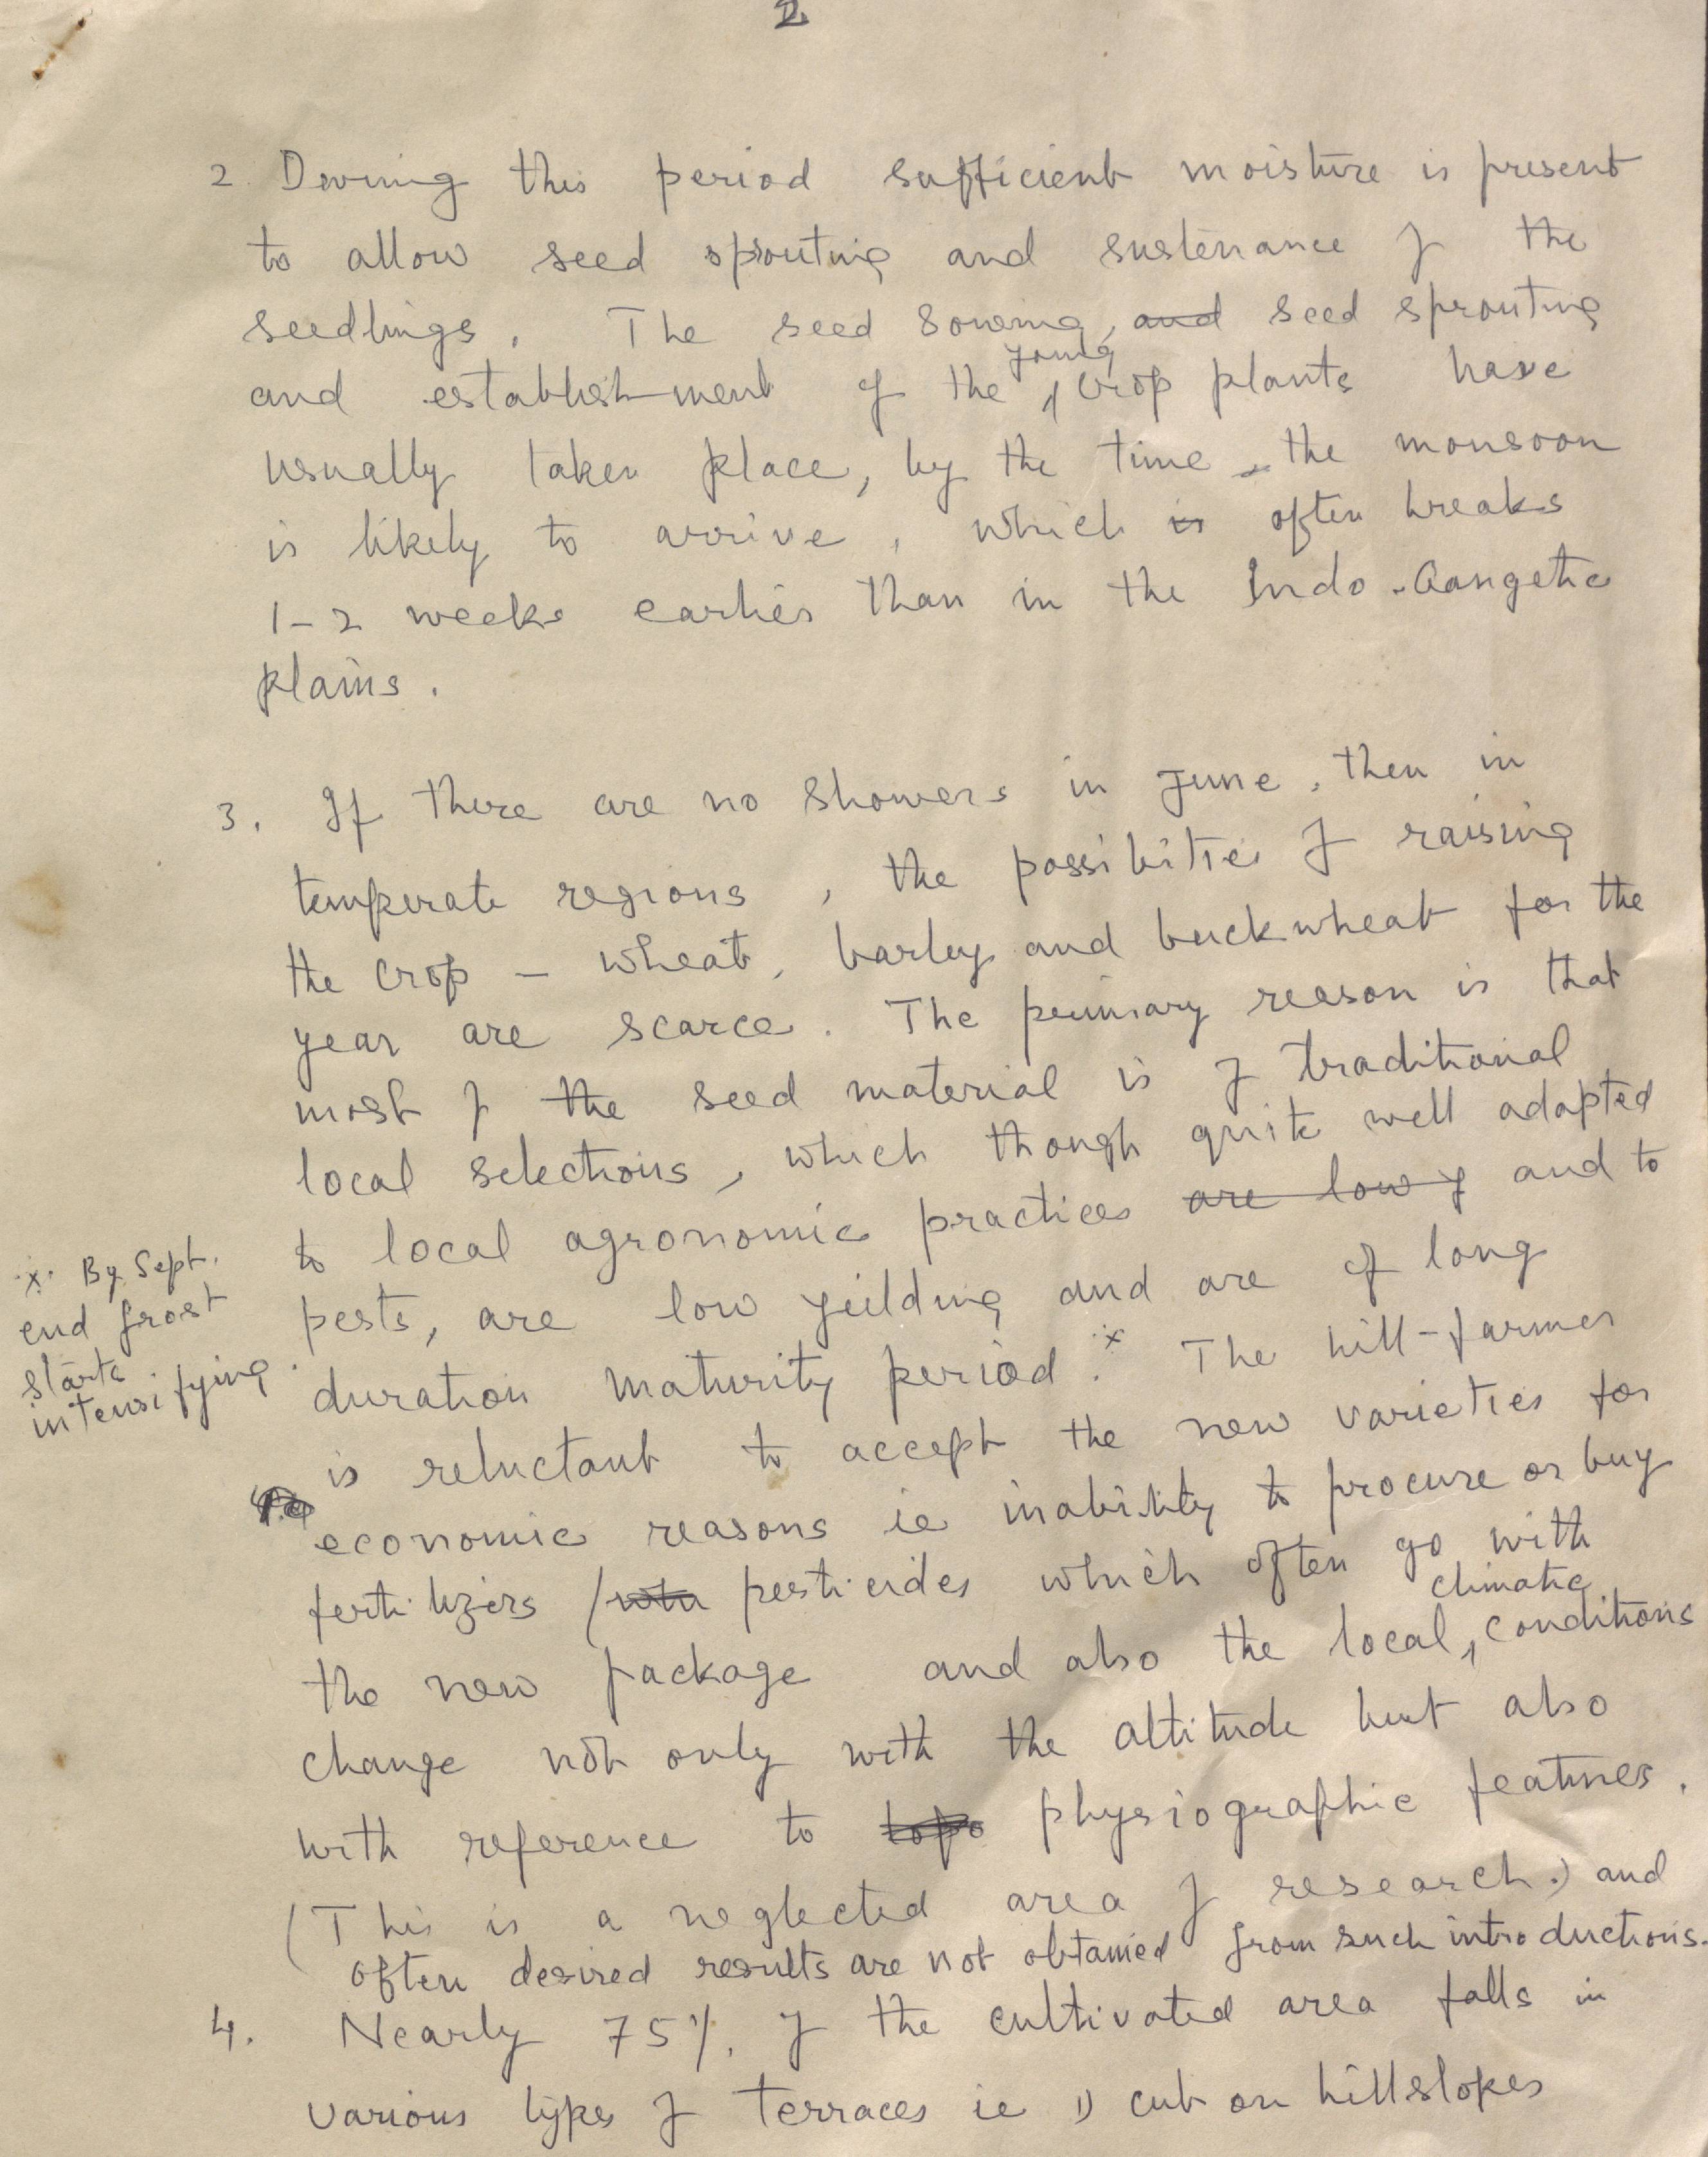 2
2. During this period sufficient moisture is present
to allow seed sprouting and sustenance of the
seedlings. The seed sowing, and seed sprouting
young
and establishment of the crop plants have
usually taken place, by the time the monsoon
is likely to arrive, which is often breaks
1-2 weeks earlier than in the Indo-Gangetic
plains.
3. If there are no showers in June, then in
temperate regions, the possibities of raising
the crop - wheat, barley and buckwheat for the
year are scarce. The primary reason is that
most of the seed material is of traditional
local selections, which though quite well adapted
to local agronomic practices are low y and to
pests, are low yielding and are of long
duration maturity period.x The hill-farmer
x. By Sept.
end frost
starts
intensifying.
is reluctant to accept the new varieties for
economic reasons ie inability to procure or buy
fertilizers / pesticides which often go with
climatic
the new package and also the local, conditions
change not only with the altitude but also
with reference to topo physiographic features.
(This is a neglected area of research.) and
often desired results are not obtained from such introductions.
4. Nearly 75% of the cultivated area falls in
various types of terraces ie 1) cut on hillslopes